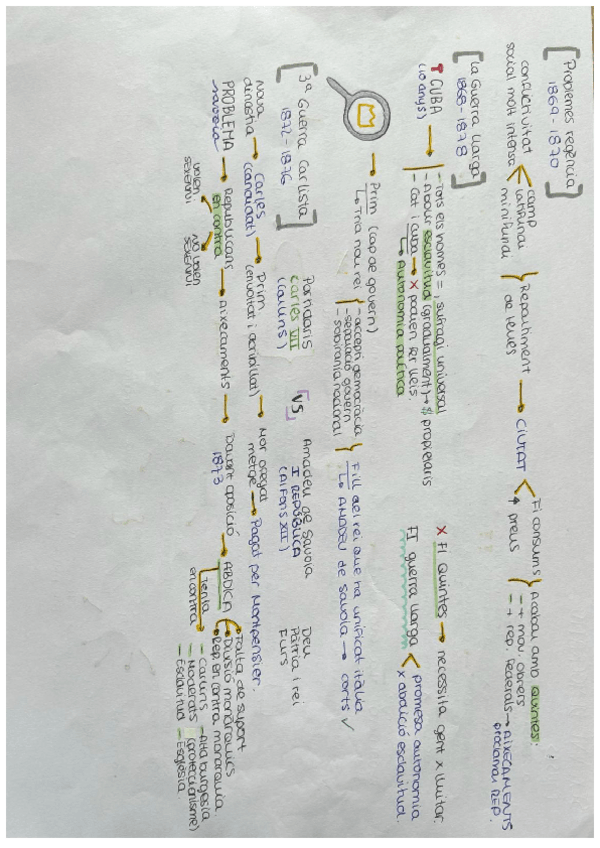 [Problemes regència]
1869-1870
conflictivitat
social molt intensa
camp
latifundi
minifundi
Repartiment
de terres
CIUTAT
Fi consums
↑ preus
Acabar amb quintes:
- + mov. obrers
- + rep. federals → AIXECAMENTS
proclamar REP.
[La Guerra llarga]
1868-1878
CUBA
(10 anys)
- Tots els homes =, sufragi universal
- Abolir esclavitud (gradualment) → $ propietaris
- Cat i Cuba → X podien fer lleis.
↳ Autonomia política
X FI QUINTES → necessita gent x lluitar.
FI guerra llarga
promesa autonomia
x abolició esclavitud.
Prim (cap de govern)
↳ Tria nou rei
- accepti democràcia
- separació govern
- sobirania nacional
Fill del rei que ha unificat Itàlia
↳ AMADEU de Savoia → corts ✓
[3a Guerra Carlista]
1872-1876
Partidaris
CARLES VII
(carlins)
[VS]
Amadeu de Savoia
I REPÚBLICA
(Alfons XII)
Deu
Pàtria i rei
Furs
Nova
dinastia
Carles
(candidat)
Prim
(envoltat i acribillat)
Mor
metge
Pagat per Montpensier.
PROBLEMA
Savoia
Republicans
en contra
volen
SEXENNI
NO volen
SEXENNI
Aixecaments
Davant oposició
1873
ABDICA
Falta de suport
Divisió monàrquics
Rep. en contra monarquia.
Tenia
en contra
- Carlins
- Moderats
- Esclavitud
- Alta burgesia
(proteccionisme)
- Església